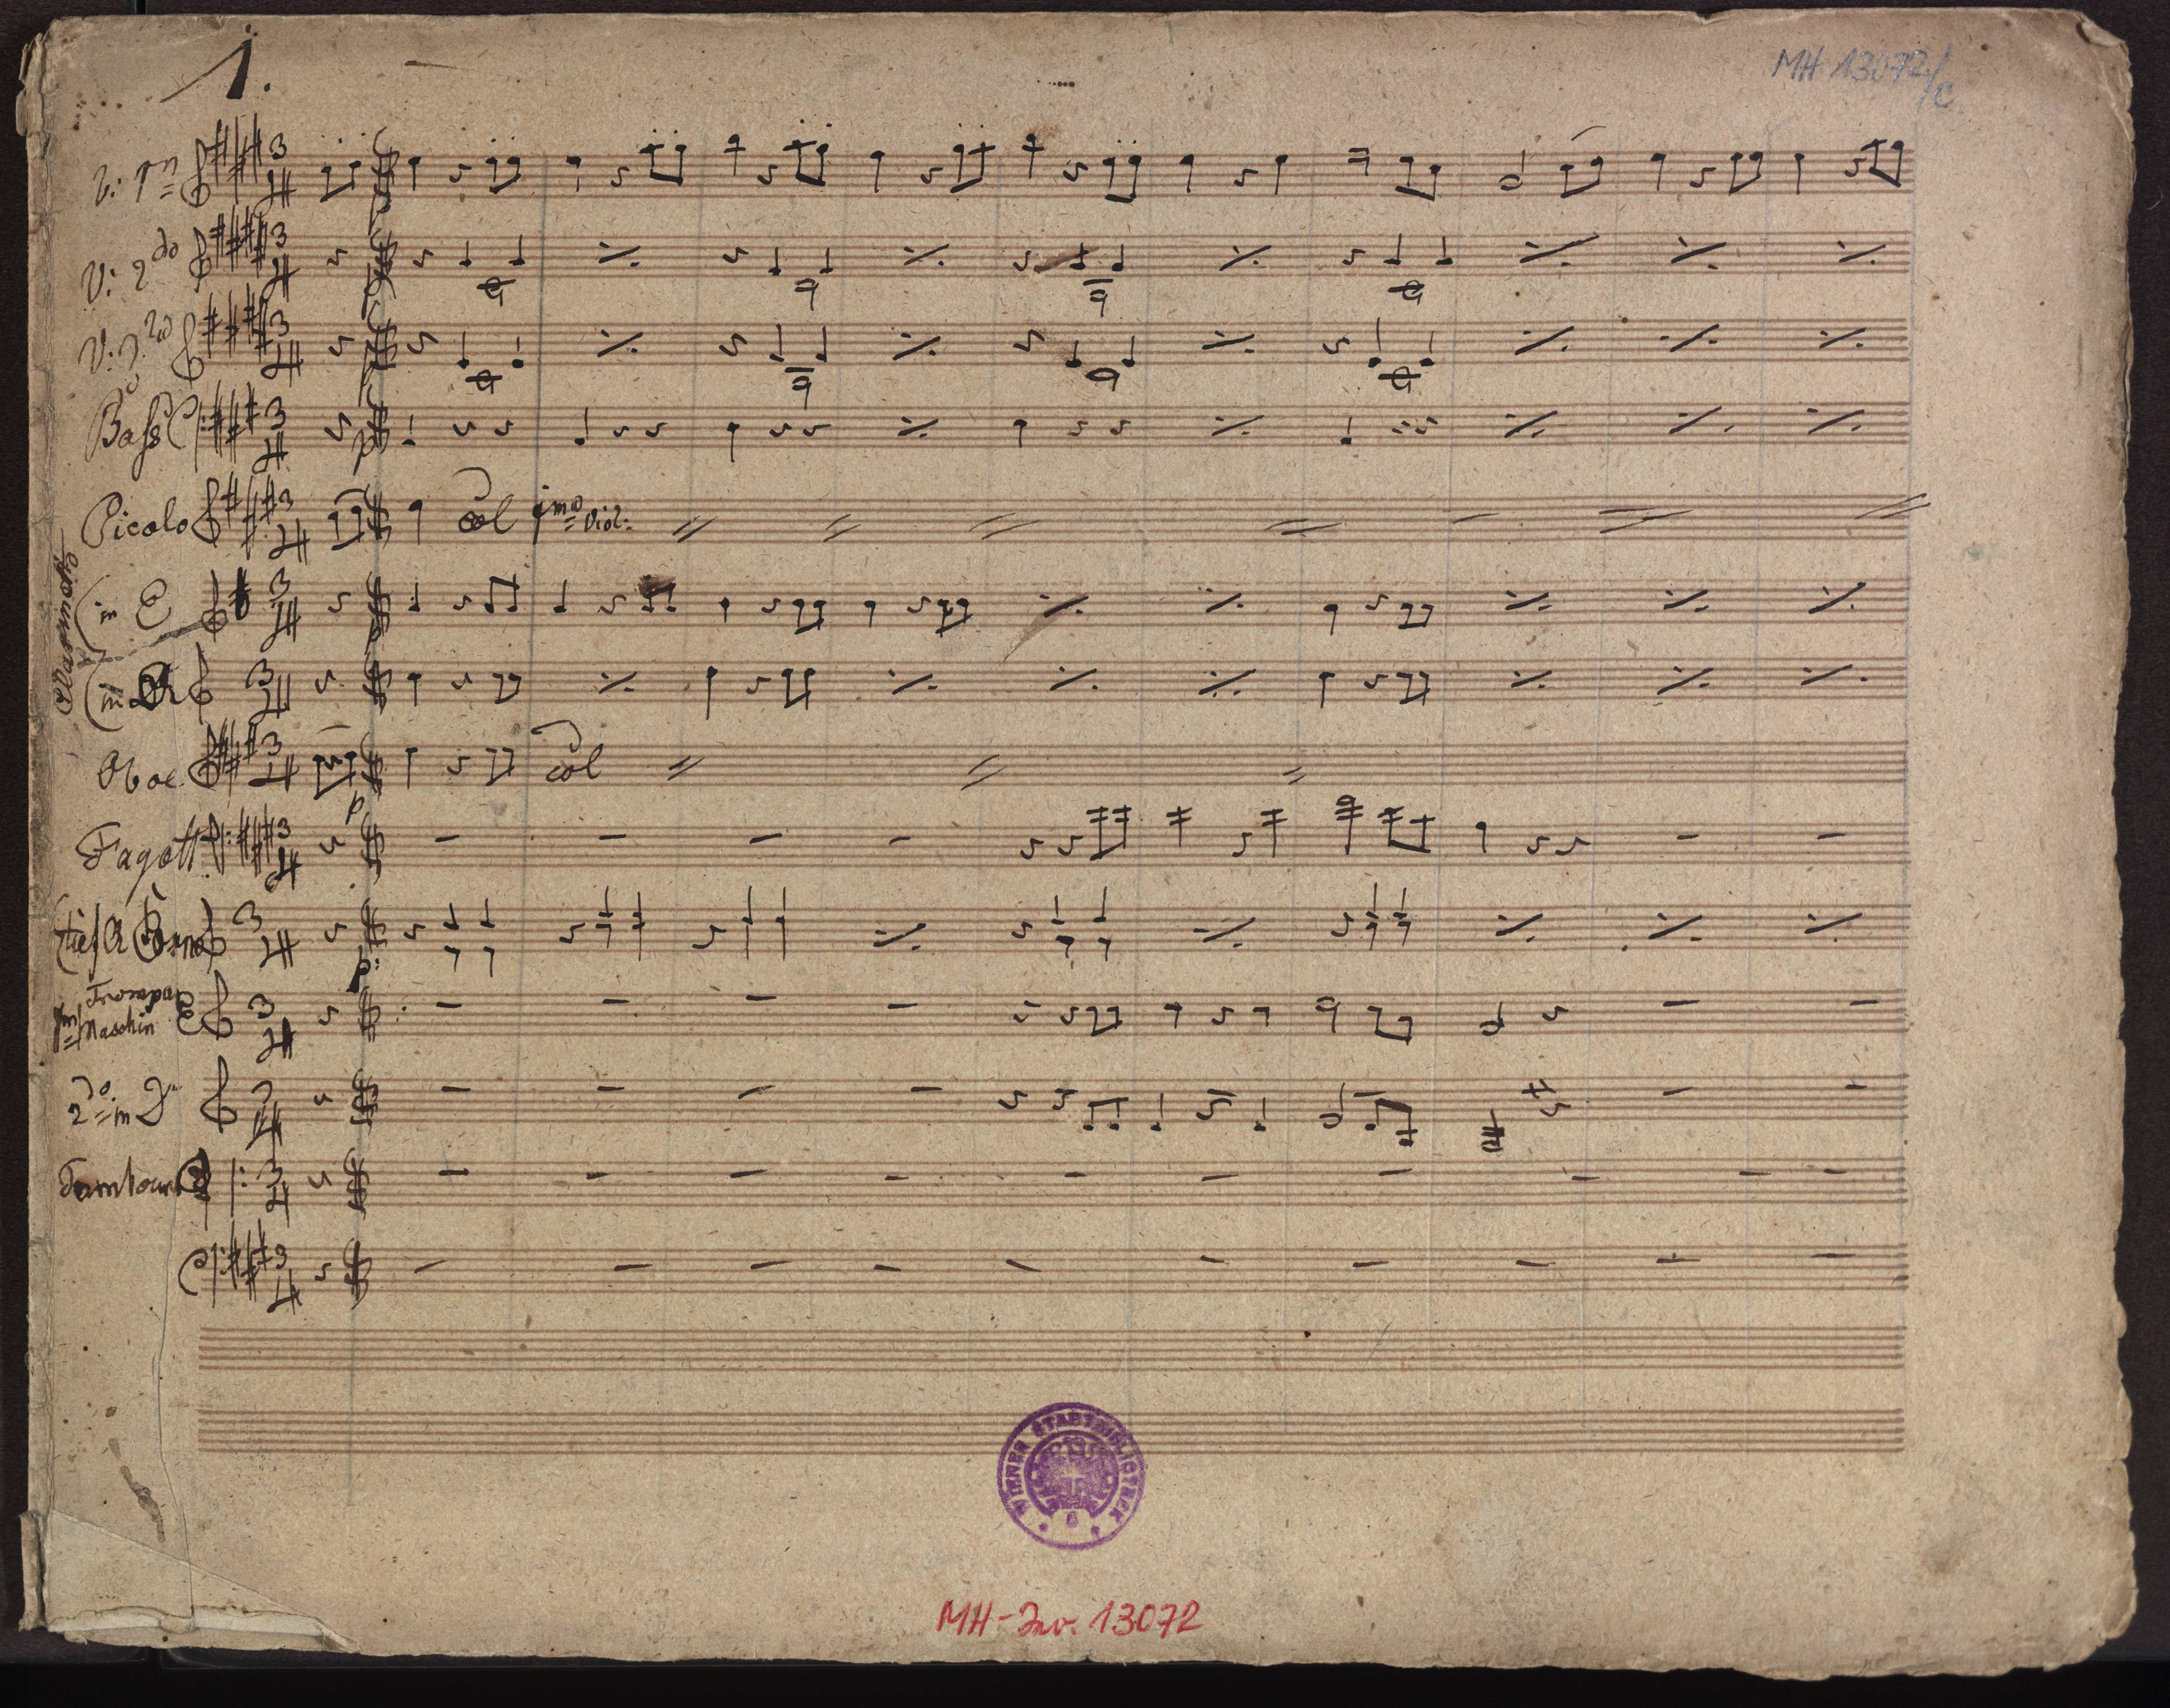 1.
MH 13072/c
V: 1mo
V: 2do
V: 3zo
Bass
Picolo
col 1mo Viol:
Clarinetto
in E
in A
Oboe
col
p
Fagott
tief A Corno
p:
Trompa
Maschin
2do in D
Tambour
WIENER STADTBIBLIOTHEK
MH-Inv. 13072